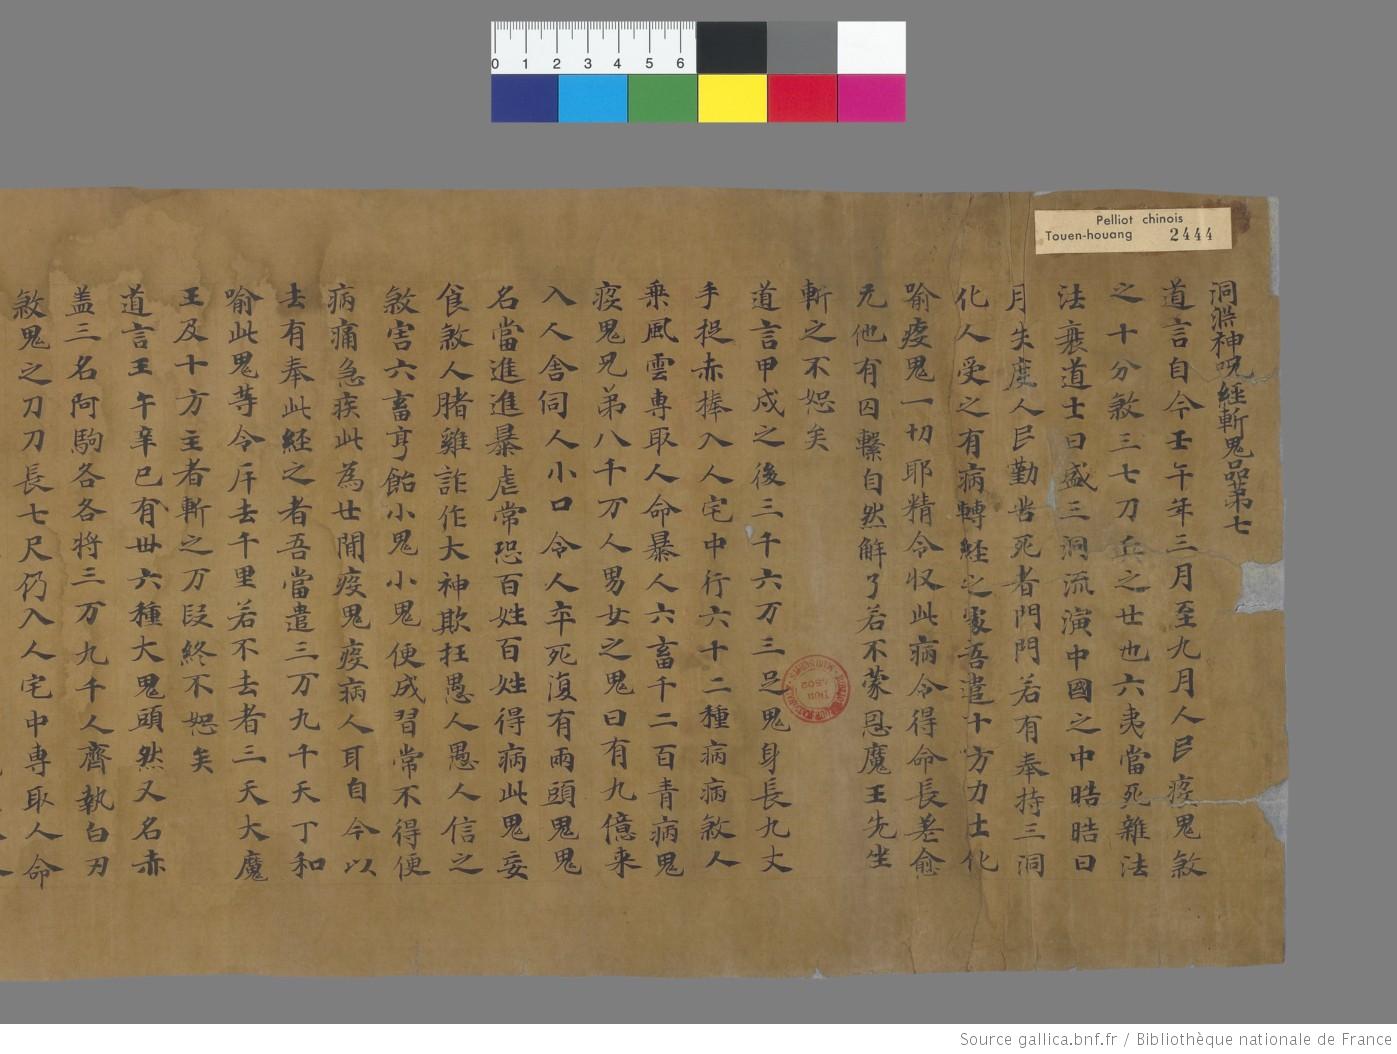 0 1 2 3 4 5 6
Pelliot chinois
Touen-houang 2444
洞渕神呪經斬鬼品第七
道言自今壬午年三月至九月人民疫鬼煞
之十分煞三七刀兵之世也六夷當死雜法
法衰道士日盛三洞流演中國之中晧晧日
月失度人民勤苦死者門門若有奉持三洞
化人受之有病轉経之家吾遣十方力士化
喻疫鬼一切耶精令収此病令得命長差愈
无他有囚繫自然解了若不蒙恩魔王先坐
斬之不恕矣
道言甲戌之後三千六万三足鬼身長九丈
手捉赤捧入人宅中行六十二種病病煞人
乗風雲専取人命暴人六畜千二百青病鬼
疫鬼兄弟八千万人男女之鬼日有九億来
入人舎伺人小口令人卒死復有兩頭鬼鬼
名當進進暴虐常恐百姓百姓得病此鬼妄
食煞人腤雞詐作大神欺抂愚人愚人信之
煞害六畜亨飴小鬼小鬼便成習常不得便
病痛急疾此為世間疫鬼疫病人耳自今以
去有奉此経之者吾當遣三万九千天丁和
喻此鬼等令斥去千里若不去者三天大魔
王及十方主者斬之万段終不恕矣
道言王午辛巳有丗六種大鬼頭然又名赤
盖三名阿駒各各将三万九千人齊執白刃
煞鬼之刀刀長七尺仍入人宅中専取人命
Source gallica.bnf.fr / Bibliothèque nationale de France